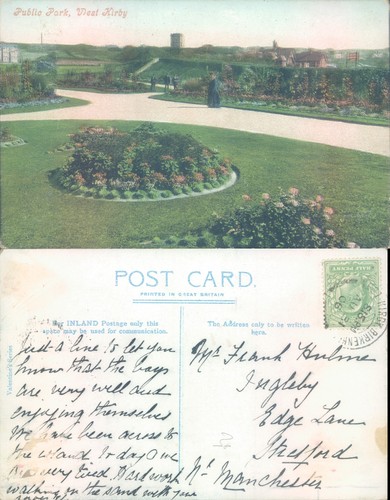 Public Park, West Kirby
POST CARD.
PRINTED IN GREAT BRITAIN
For INLAND Postage only this
space may be used for communication.
The Address only to be written
here.
Valentine's Series
Just a line to let you
know that the boys
are very well and
enjoying themselves
We have been across to
the island to day
very tired Hard work
walking on the sand with
Frank Hulme
Ingleby
Edge Lane
Stretford
Nr Manchester
HALF PENNY
BIRKENH